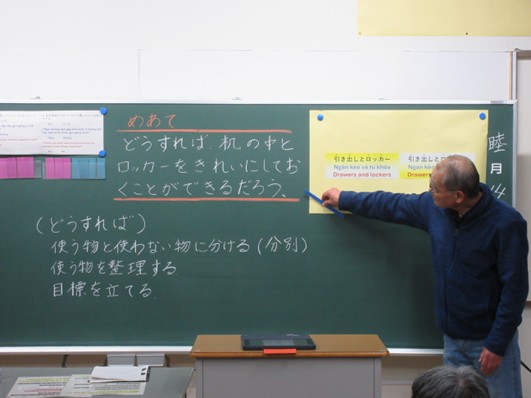 めあて
どうすれば、机の中と
ロッカーをきれいにしてお
くことができるだろう。
(どうすれば)
使う物と使わない物に分ける(分別)
使う物を整理する
目標を立てる
引き出しとロッカー
Ngăn kéo và tủ khóa
Drawers and lockers
引き出しとロ
Ngăn kéo
Drawers
睦
月